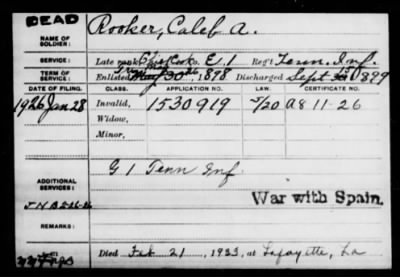 DEAD
NAME OF SOLDIER: Rooker, Caleb A.
SERVICE: Late rank Co. E. 1 Reg't Tenn. Inf.
TERM OF SERVICE: Enlisted May 30 1898 Discharged Sept 1899
DATE OF FILING. CLASS. APPLICATION NO. LAW. CERTIFICATE NO.
1926 Jan 28 Invalid, 1530919 A 8 11-26
Widow,
Minor,
ADDITIONAL SERVICES: G 1 Tenn Inf
War with Spain.
REMARKS:
Died Feb. 21, 1933, at Lafayette, La